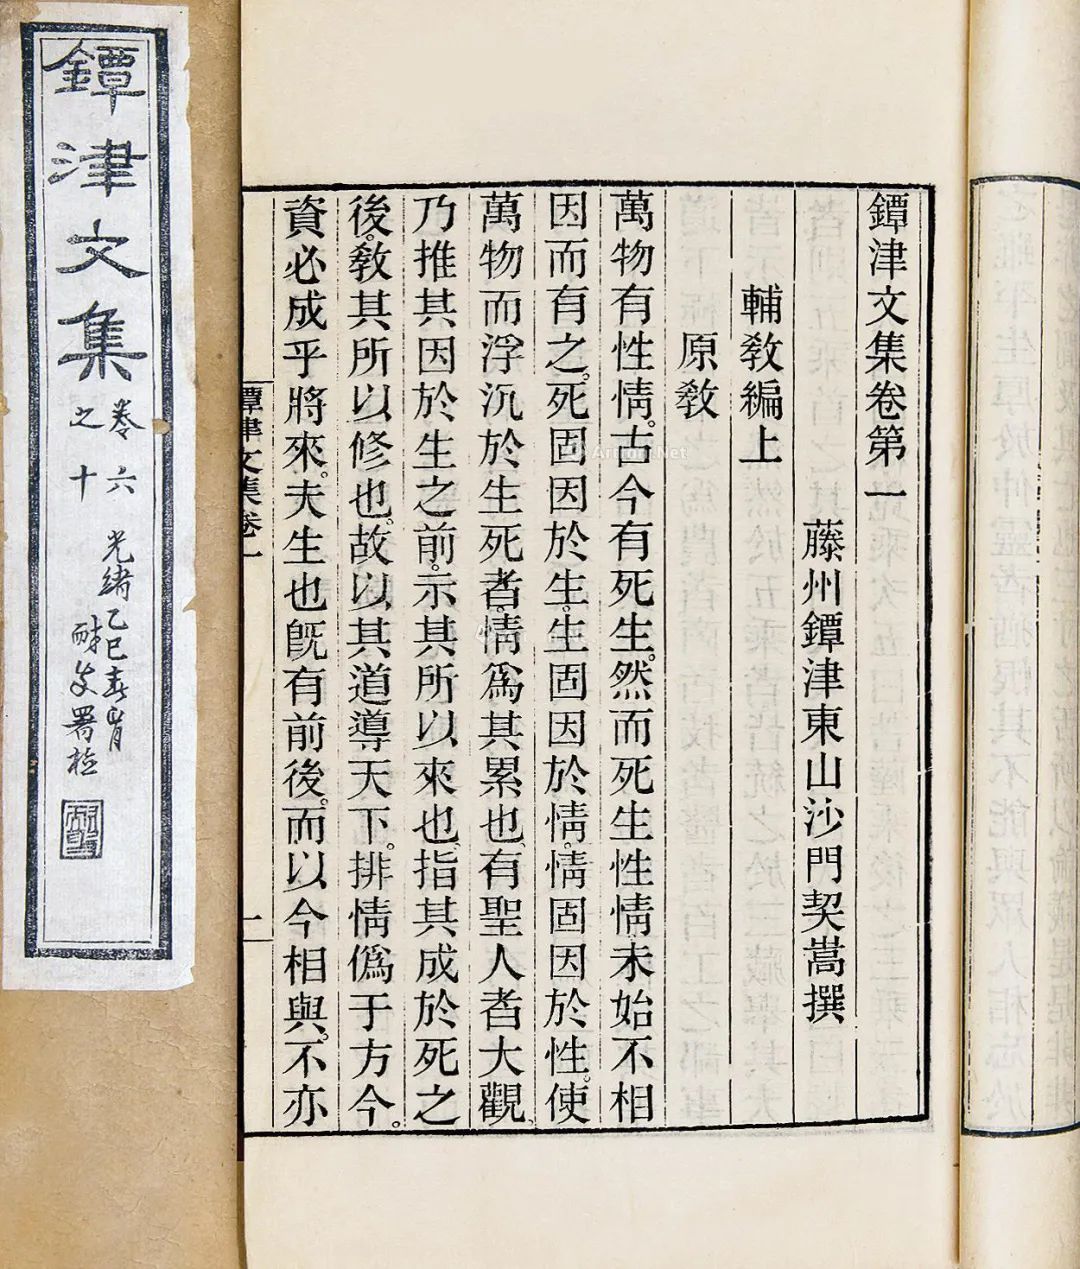 鐔津文集
卷六
之十
光緒乙巳春肖
耐安署檢
鐔津文集卷第一
藤州鐔津東山沙門契嵩撰
輔教編上
原教
萬物有性情。古今有死生。然而死生性情未始不相
因而有之。死固因於生。生固因於情。情固因於性。使
萬物而浮沉於生死者。情爲其累也。有聖人者大觀。
乃推其因於生之前。示其所以來也。指其成於死之
後。教其所以修也。故以其道導天下。排情僞于方今。
資必成乎將來。夫生也旣有前後。而以今相與。不亦
鐔津文集卷一
一
Artron.Net